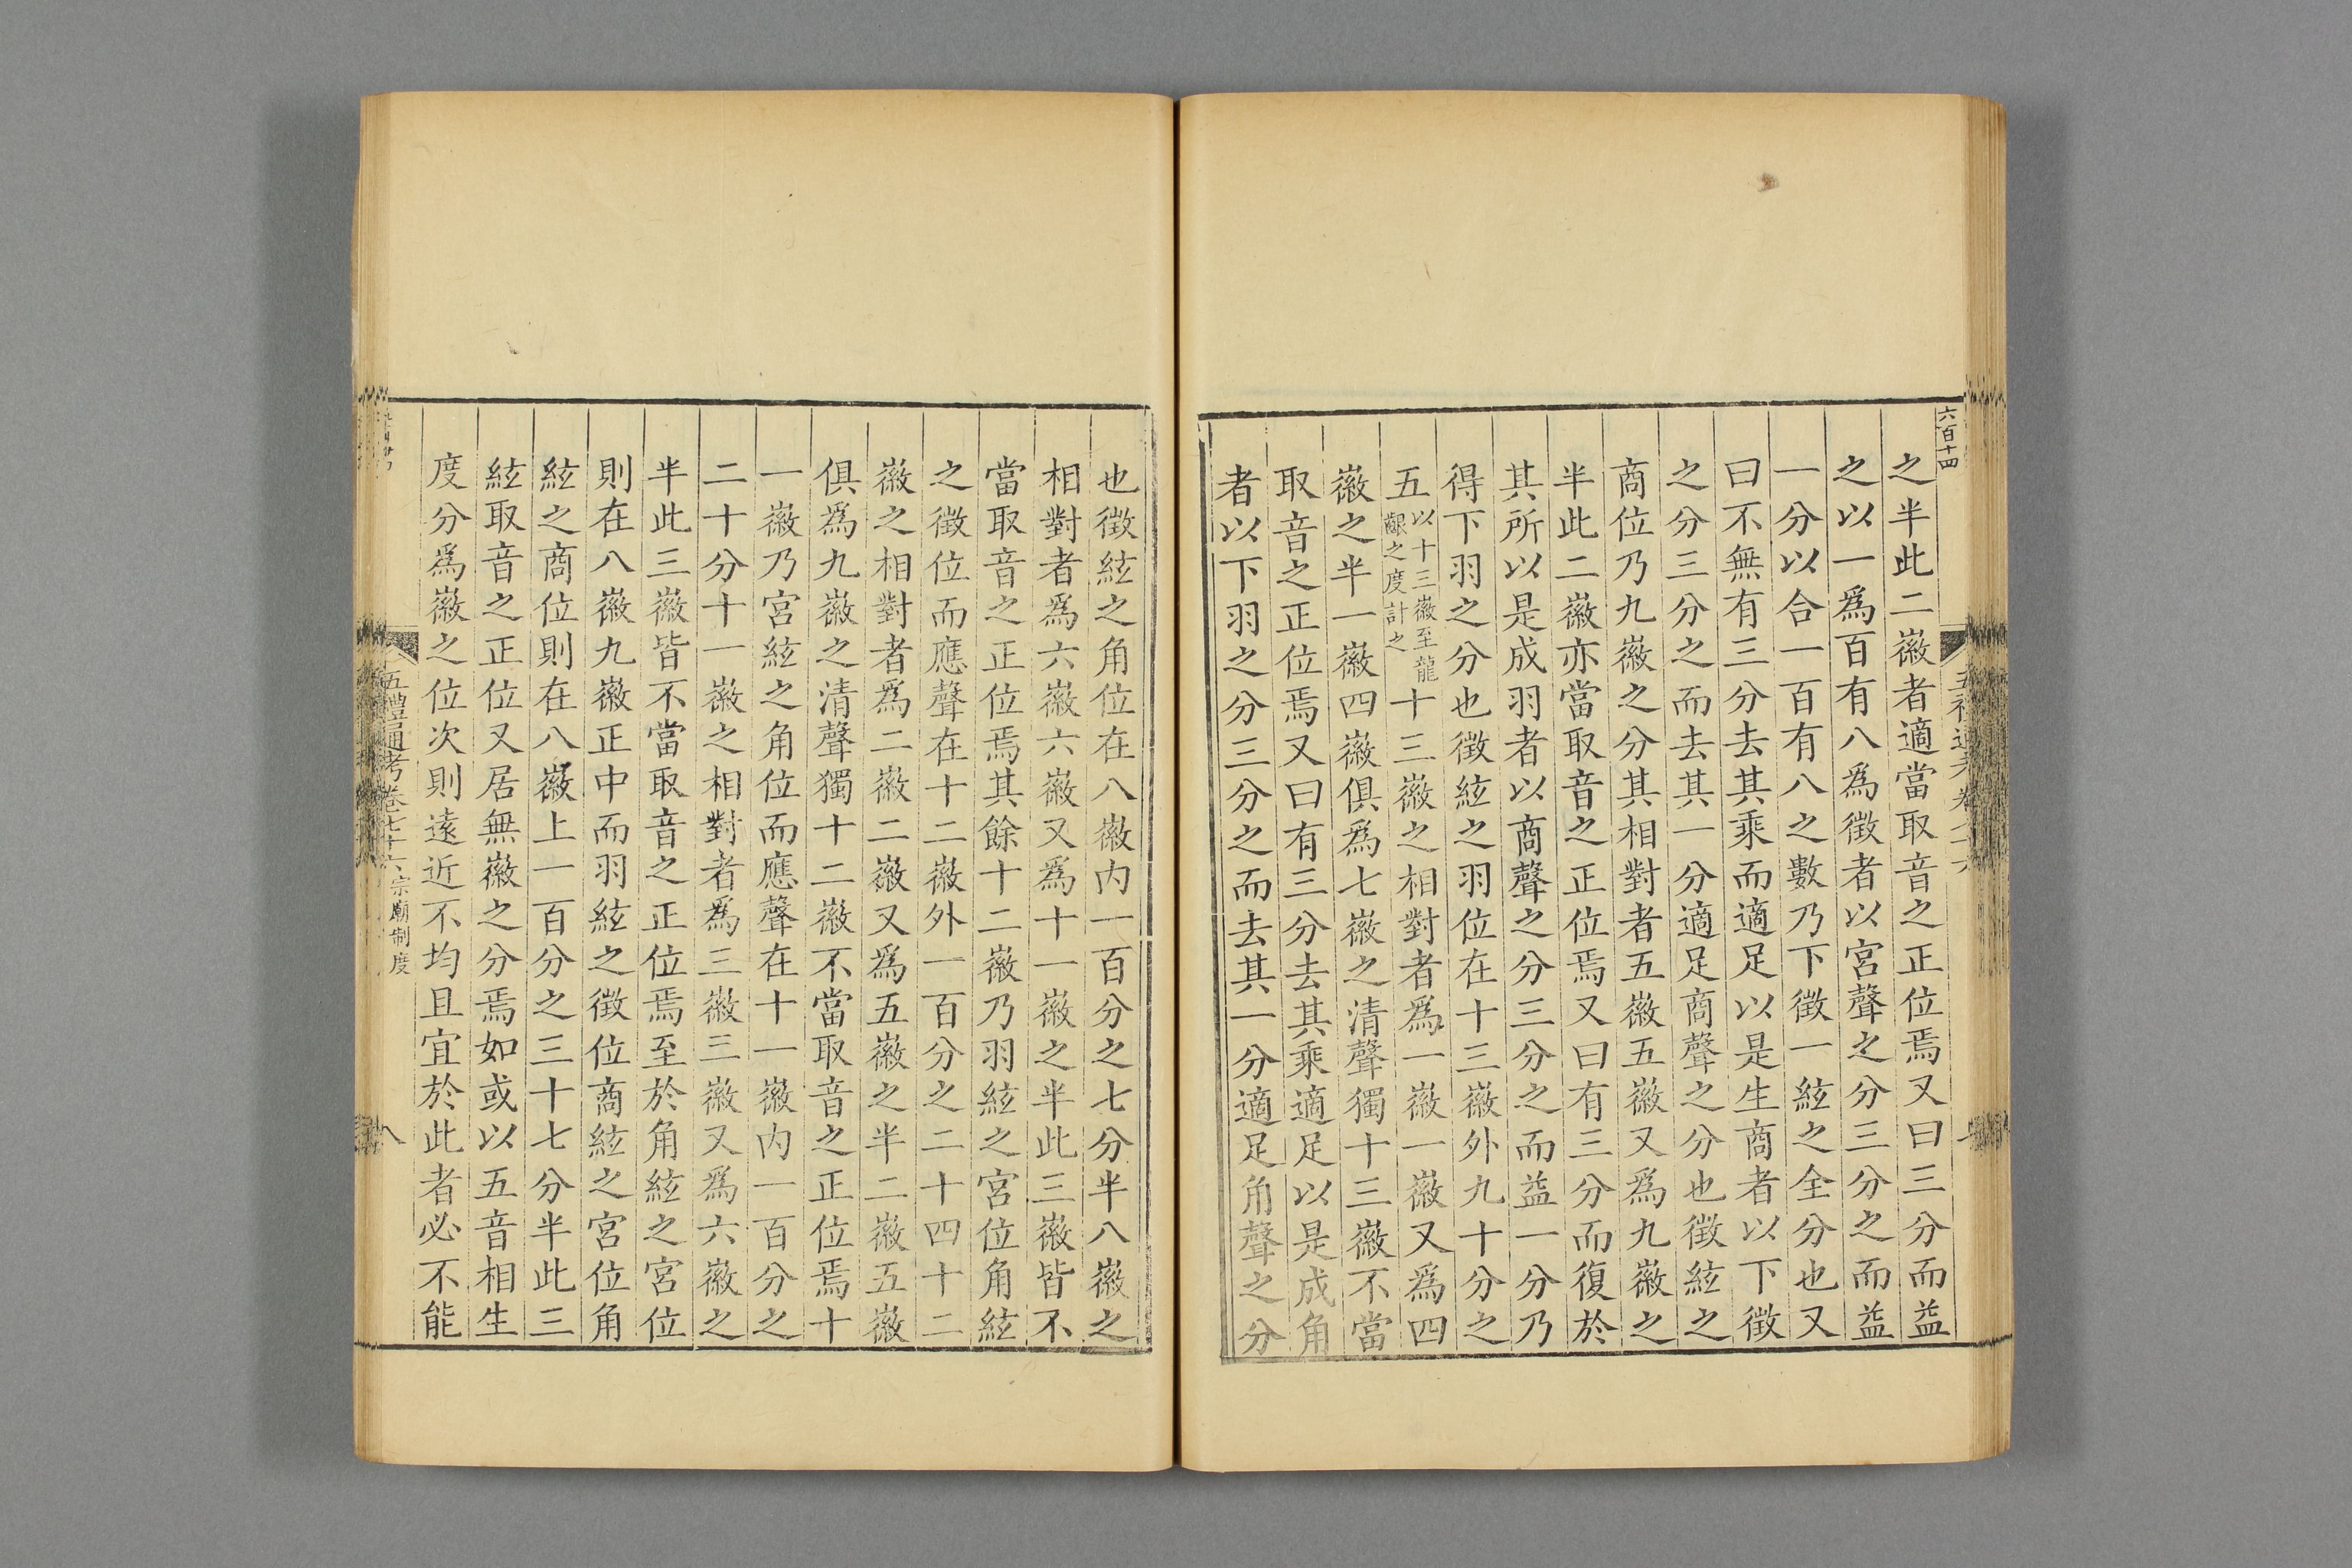 六百十四
之半此二徽者適當取音之正位焉又曰三分而益
之以一爲百有八爲徵者以宮聲之分三分之而益
一分以合一百有八之數乃下徵一絃之全分也又
曰不無有三分去其乘而適足以是生商者以下徵
之分三分之而去其一分適足商聲之分也徵絃之
商位乃九徽之分其相對者五徽五徽又爲九徽之
半此二徽亦當取音之正位焉又曰有三分而復於
其所以是成羽者以商聲之分三分之而益一分乃
得下羽之分也徵絃之羽位在十三徽外九十分之
五以十三徽至龍齦之度計之十三徽之相對者爲一徽一徽又爲四
徽之半一徽四徽俱爲七徽之清聲獨十三徽不當
取音之正位焉又曰有三分去其乘適足以是成角
者以下羽之分三分之而去其一分適足角聲之分
也徵絃之角位在八徽内一百分之七分半八徽之
相對者爲六徽六徽又爲十一徽之半此三徽皆不
當取音之正位焉其餘十二徽乃羽絃之宮位角絃
之徵位而應聲在十二徽外一百分之二十四十二
徽之相對者爲二徽二徽又爲五徽之半二徽五徽
俱爲九徽之清聲獨十二徽不當取音之正位焉十
一徽乃宮絃之角位而應聲在十一徽内一百分之
二十分十一徽之相對者爲三徽三徽又爲六徽之
半此三徽皆不當取音之正位焉至於角絃之宮位
則在八徽九徽正中而羽絃之徵位商絃之宮位角
絃之商位則在八徽上一百分之三十七分半此三
絃取音之正位又居無徽之分焉如或以五音相生
度分爲徽之位次則遠近不均且宜於此者必不能
五禮通考卷七十六 宗廟制度
八